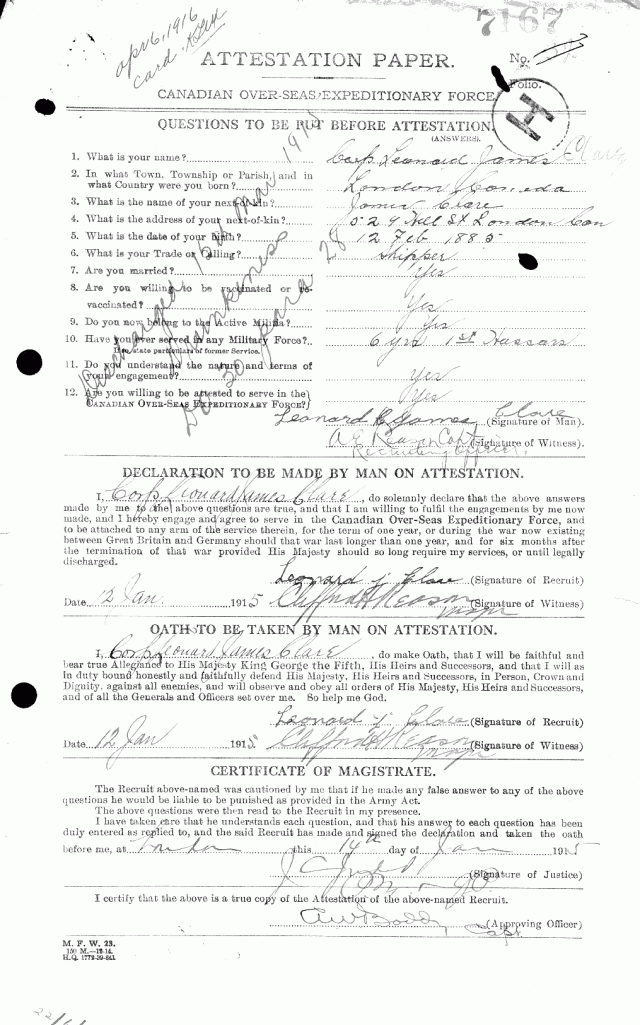 7167
apr 6, 1916
card
ATTESTATION PAPER.
No.
Folio.
CANADIAN OVER-SEAS EXPEDITIONARY FORCE
H
QUESTIONS TO BE PUT BEFORE ATTESTATION.
(ANSWERS).
1. What is your name? Corp Leonard James Clare
2. In what Town, Township or Parish, and in
what Country were you born? London Canada
3. What is the name of your next-of-kin? James Clare
4. What is the address of your next-of-kin? 529 Hill St London Can
5. What is the date of your Birth? 12 Feb 1885
6. What is your Trade or Calling? Shipper
7. Are you married? Yes
8. Are you willing to be vaccinated or re-
vaccinated? Yes
9. Do you now belong to the Active Militia? Yes
10. Have you ever served in any Military Force? 6 yrs 1st Hussars
If so, state particulars of former Service.
11. Do you understand the nature and terms of
your engagement? Yes
12. Are you willing to be attested to serve in the
CANADIAN OVER-SEAS EXPEDITIONARY FORCE? Yes
Discharged 15 Mar 1915
Drunkenness
28
30 years
Leonard James Clare (Signature of Man).
A E Reason Capt (Signature of Witness).
Recruiting Officer.
DECLARATION TO BE MADE BY MAN ON ATTESTATION.
I, Corp Leonard James Clare, do solemnly declare that the above answers
made by me to the above questions are true, and that I am willing to fulfil the engagements by me now
made, and I hereby engage and agree to serve in the Canadian Over-Seas Expeditionary Force, and
to be attached to any arm of the service therein, for the term of one year, or during the war now existing
between Great Britain and Germany should that war last longer than one year, and for six months after
the termination of that war provided His Majesty should so long require my services, or until legally
discharged.
Leonard J Clare (Signature of Recruit)
Date 12 Jan 1915 Clifford H Reason (Signature of Witness)
Major
OATH TO BE TAKEN BY MAN ON ATTESTATION.
I, Corp Leonard James Clare, do make Oath, that I will be faithful and
bear true Allegiance to His Majesty King George the Fifth, His Heirs and Successors, and that I will as
in duty bound honestly and faithfully defend His Majesty, His Heirs and Successors, in Person, Crown and
Dignity, against all enemies, and will observe and obey all orders of His Majesty, His Heirs and Successors,
and of all the Generals and Officers set over me. So help me God.
Leonard J Clare (Signature of Recruit)
Date 12 Jan 1915 Clifford H Reason (Signature of Witness)
Major
CERTIFICATE OF MAGISTRATE.
The Recruit above-named was cautioned by me that if he made any false answer to any of the above
questions he would be liable to be punished as provided in the Army Act.
The above questions were then read to the Recruit in my presence.
I have taken care that he understands each question, and that his answer to each question has been
duly entered as replied to, and the said Recruit has made and signed the declaration and taken the oath
before me, at London this 14th day of Jan 1915
(Signature of Justice)
I certify that the above is a true copy of the Attestation of the above-named Recruit.
(Approving Officer)
Capt.
M. F. W. 23.
150 M.—12-14.
H.Q. 1772-39-841.